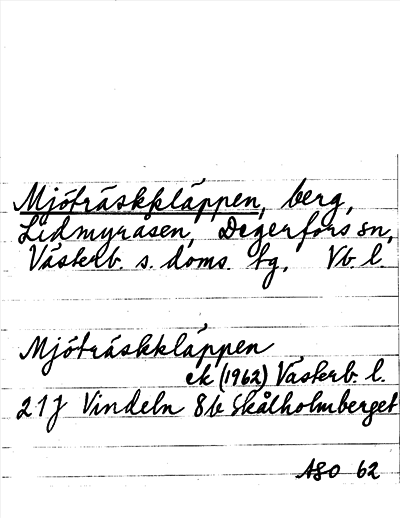 Mjöträskkläppen, berg,
Lidmyråsen, Degerfors sn,
Västerb. s. doms. tg, Vb. l.
Mjöträskkläppen
ek (1962) Västerb. l.
21J Vindeln 8b Skålholmberget
ASO 62